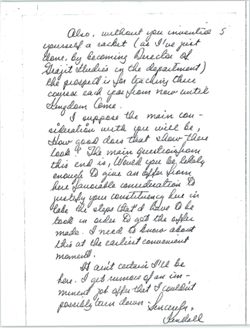 Also, without you inventing 5
yourself a racket (as I've just
done, by becoming Director of
Studies in the department)
the prospect is for teaching three
courses each year from now until
Kingdom Come.
I suppose the main con-
sideration with you will be,
How good does that show there
look? The main question from
this end is, Would you be likely
enough to give an offer from
here favorable consideration to
justify your constituency here in
take the steps that'd have to be
took in order to get the offer
made. I need to know about
this at the earliest convenient
moment.
It ain't certain I'll be
here. I get rumors of an im-
minent job offer that I couldn't
possibly turn down. Sincerely,
Kendall